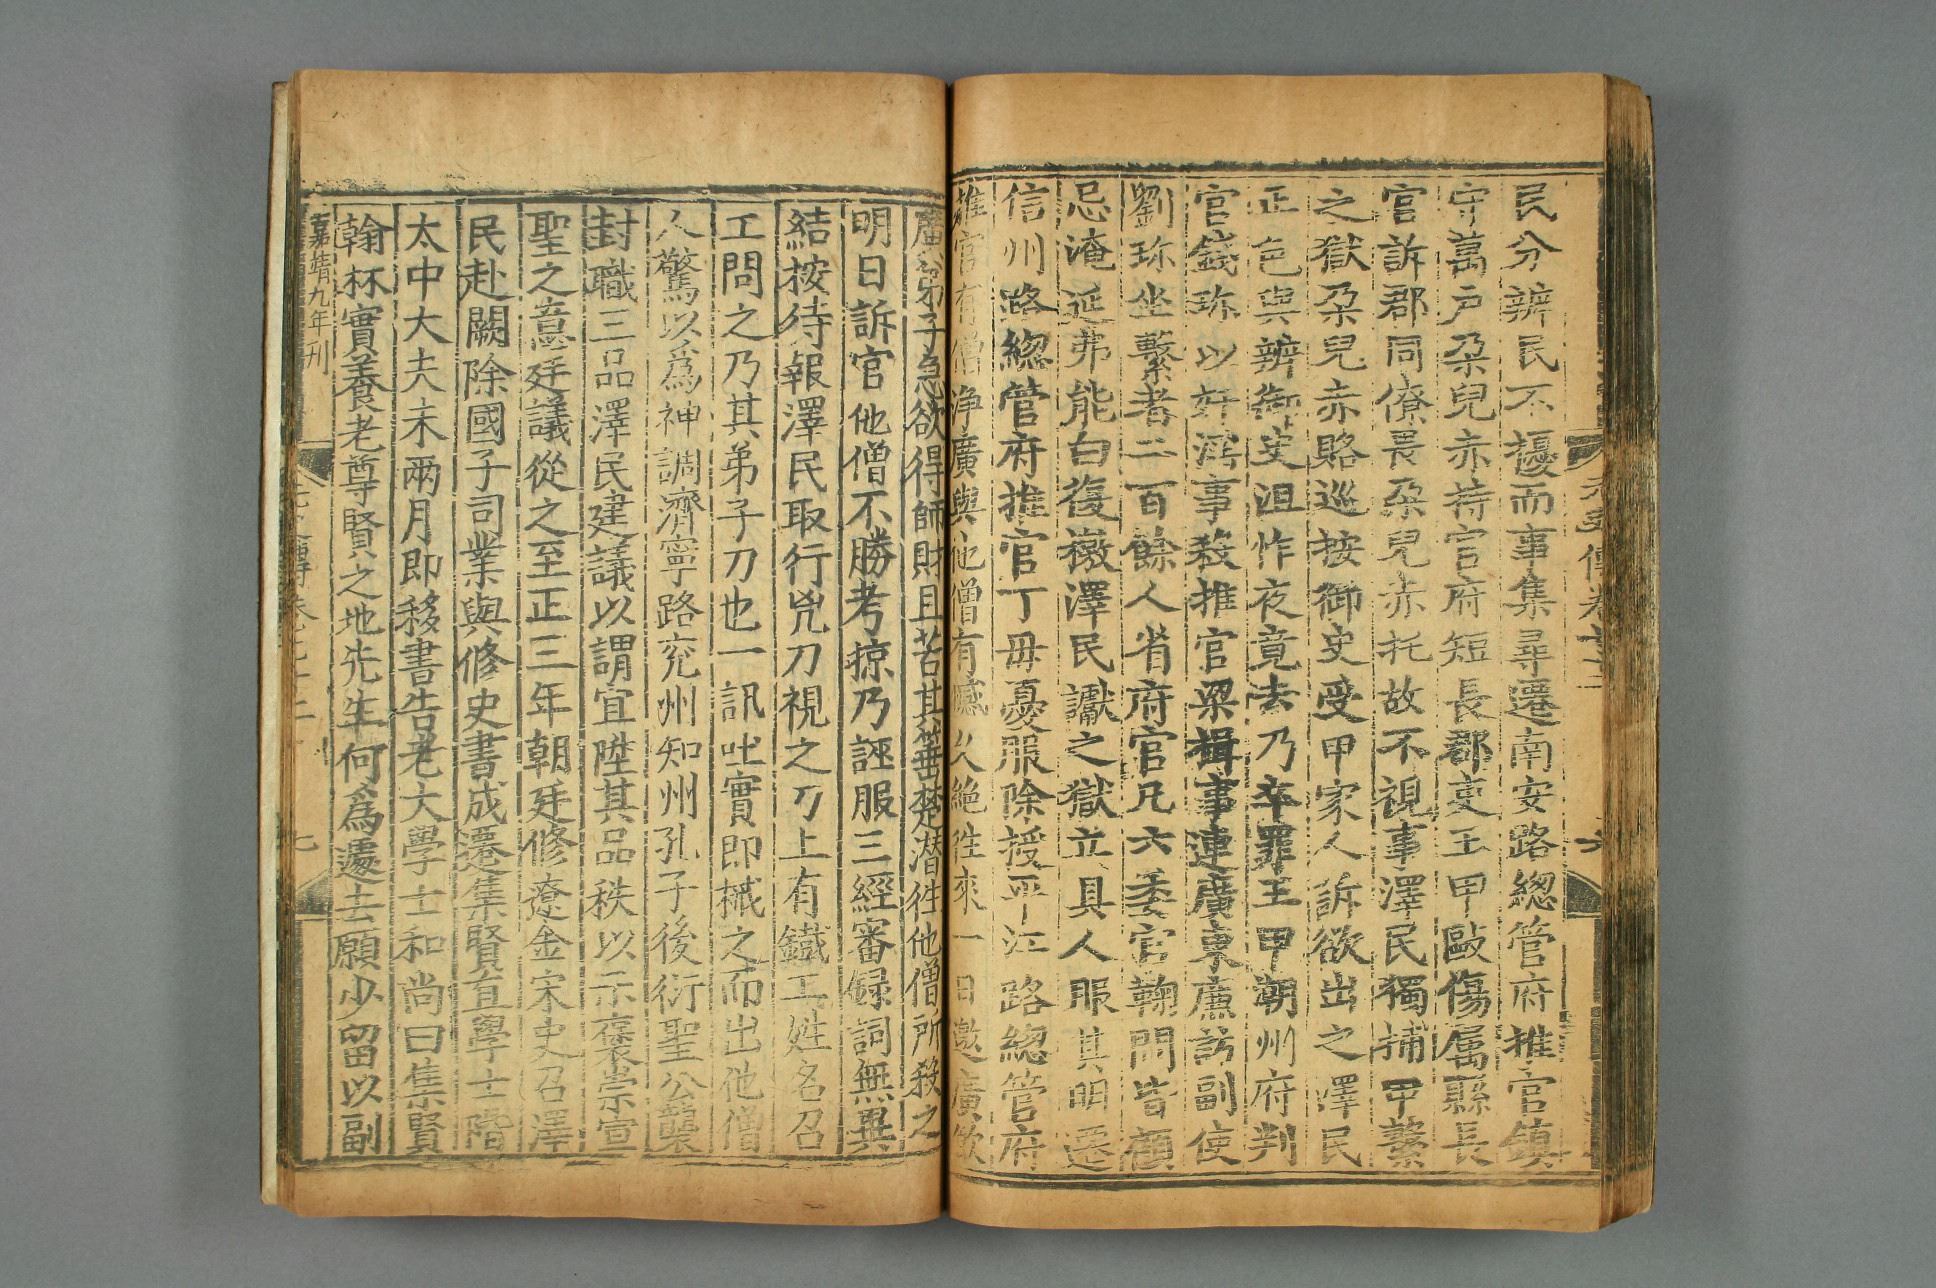 民分辨民不擾而事集尋遷南安路總管府推官鎮
守萬戶朶兒赤持官府短長郡吏王甲毆傷属縣長
官訴郡同僚畏朶兒赤托故不視事澤民獨捕甲繫
之獄朶兒赤賂巡按御史受甲家人訴欲出之澤民
正色與辨御史沮怍夜竟去乃卒罪王甲潮州府判
官錢珍以奸淫事殺推官梁楫事連廣東廉訪副使
劉珍坐繫者二百餘人省府官凡六委官鞫問皆顧
忌淹延弗能白復檄澤民讞之獄立具人服其明遷
信州路總管府推官丁毋憂服除授平江路總管府
推官有僧淨廣與他僧有憾久絶徃來一日邀廣飲
廣弟子急欲得師財且苦其箠楚潜徃他僧所殺之
明日訴官他僧不勝考掠乃誣服三經審録詞無異
結按待報澤民取行兇刀視之刀上有鐵工姓名召
工問之乃其弟子刀也一訊吐實即械之而出他僧
人驚以爲神調濟寧路兖州知州孔子後衍聖公襲
封職三品澤民建議以謂宜陞其品秩以示褒崇宣
聖之意廷議從之至正三年朝廷修遼金宋史召澤
民赴闕除國子司業與修史書成遷集賢直學士階
太中大夫未兩月即移書告老大學士和尚曰集賢
翰林實養老尊賢之地先生何爲遽去願少留以副
嘉靖九年刊
七